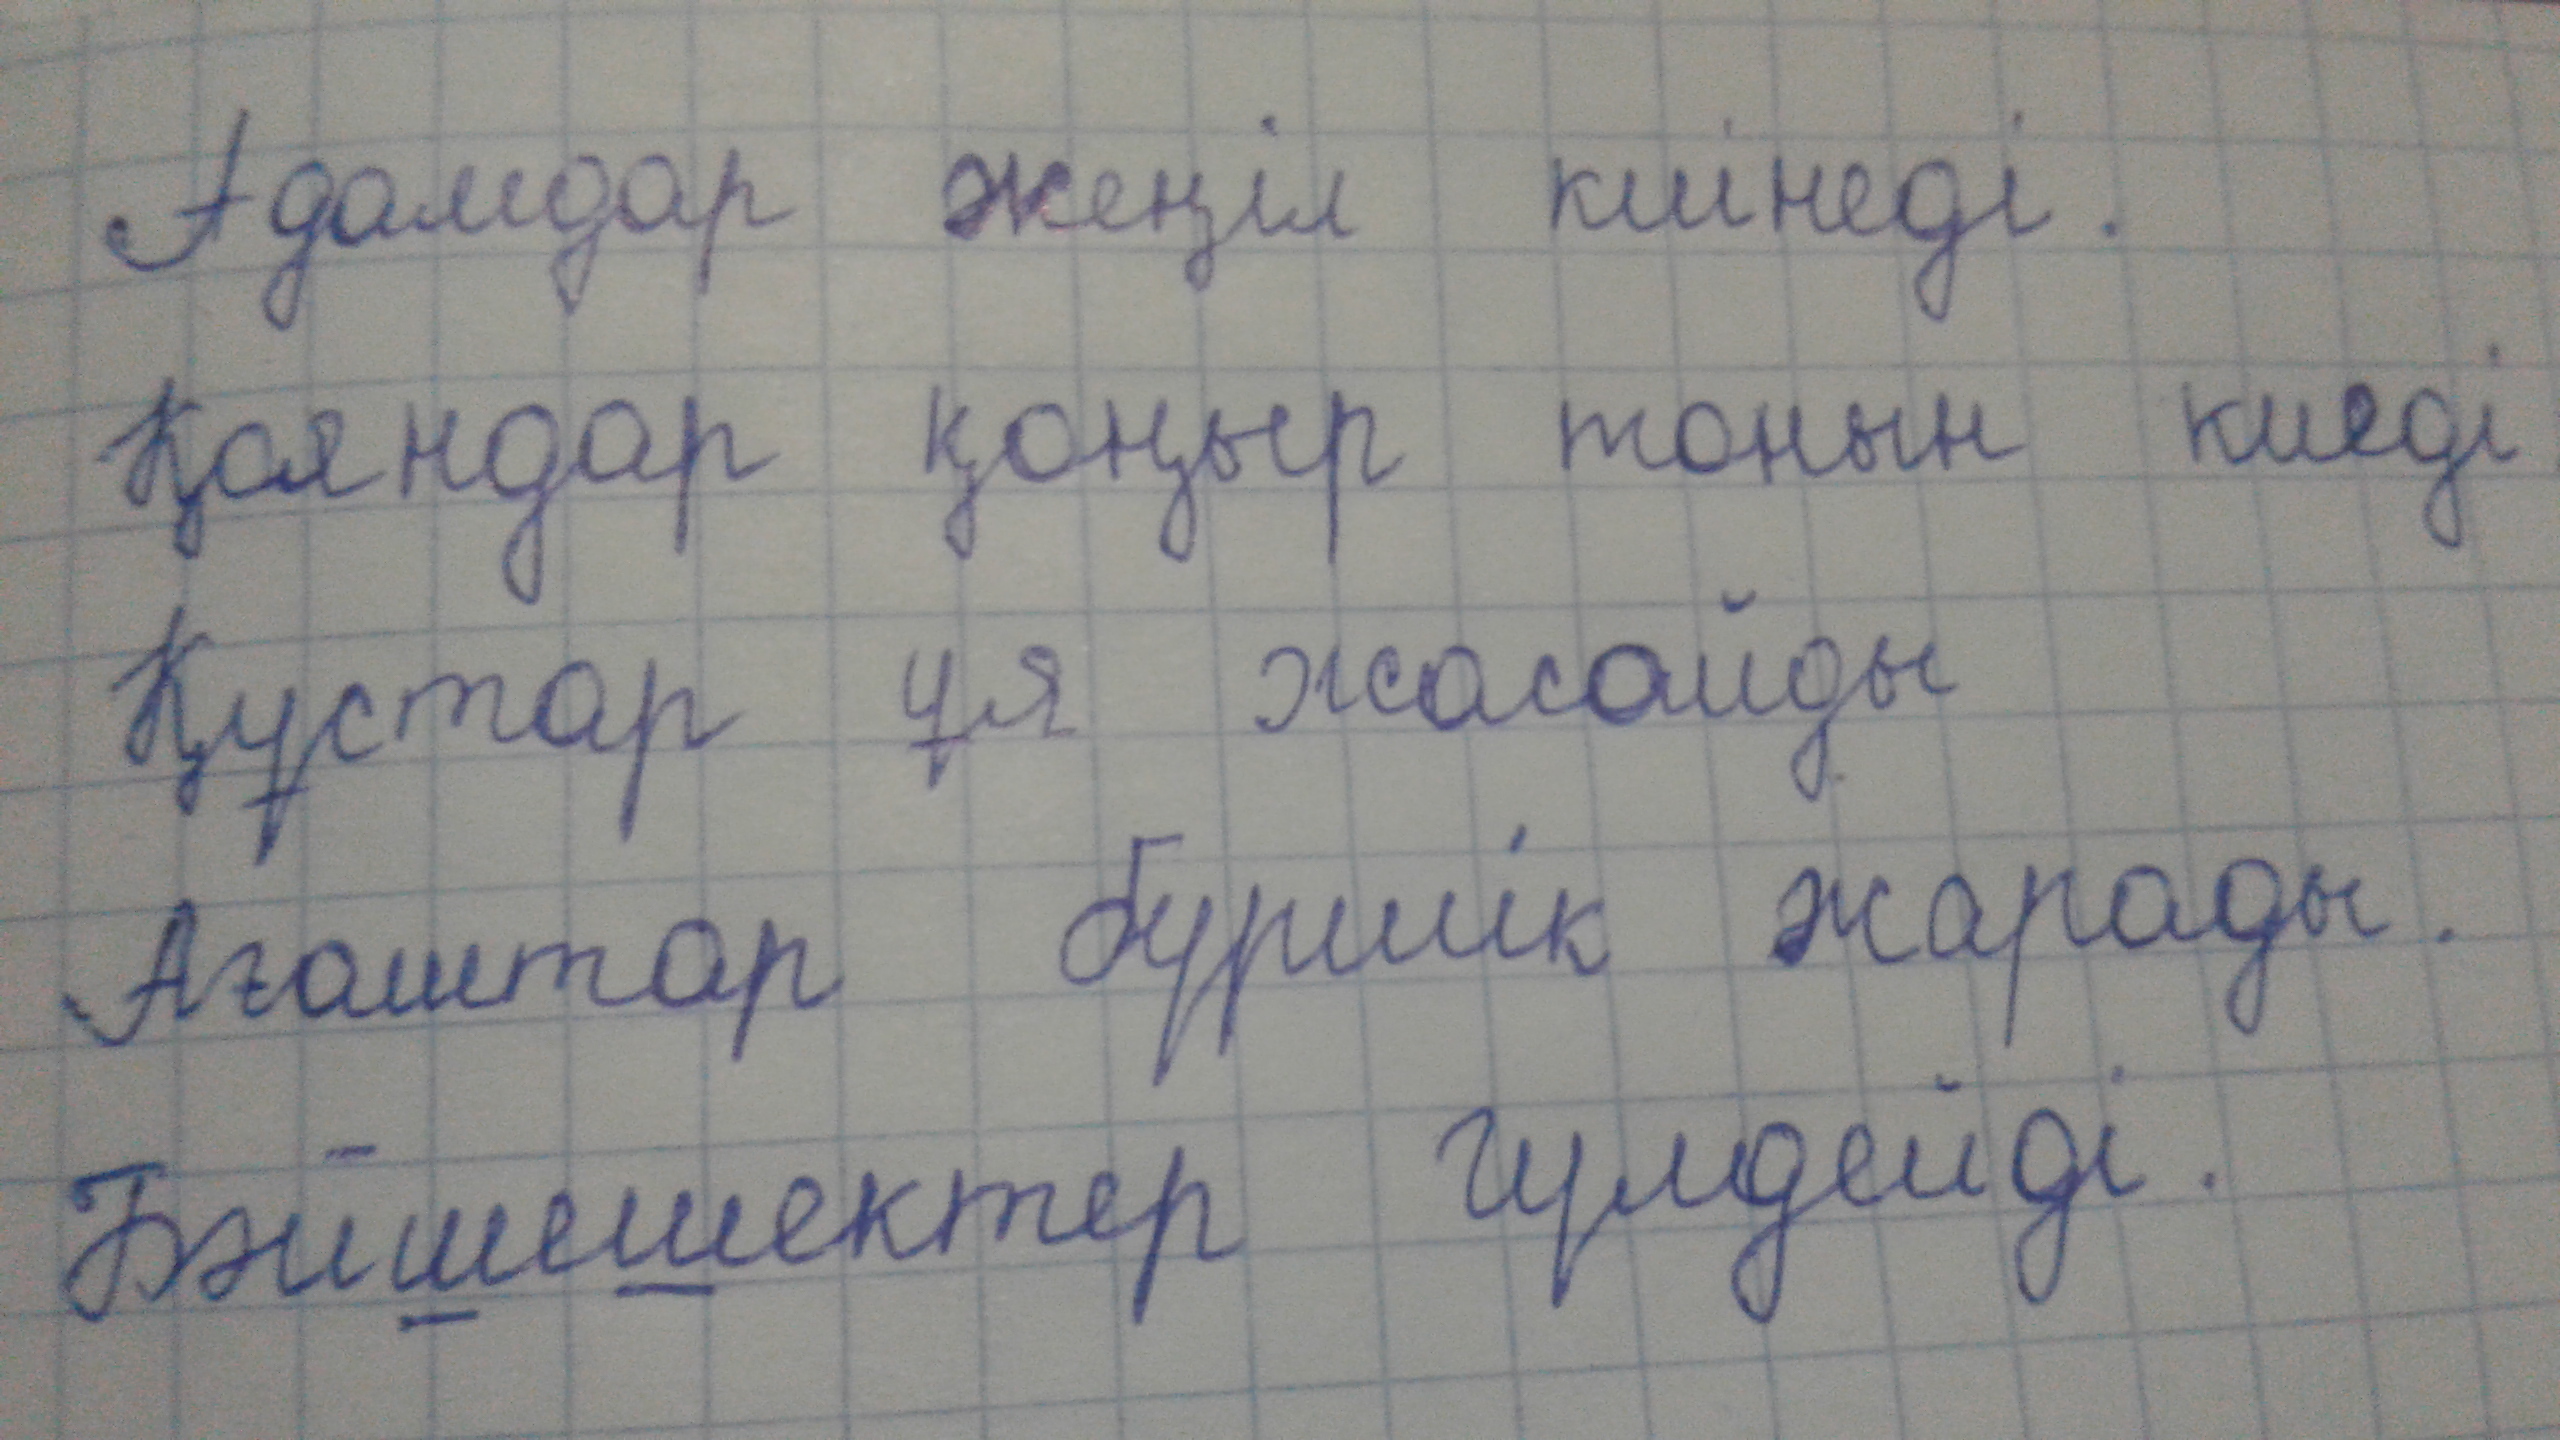 Адамдар жеңіл киінеді.
Қаяндар қоңыр тонын киеді.
Құстар ұя жасайды
Ағаштар бүршік жарады.
Бәйшешектер гүлдейді.